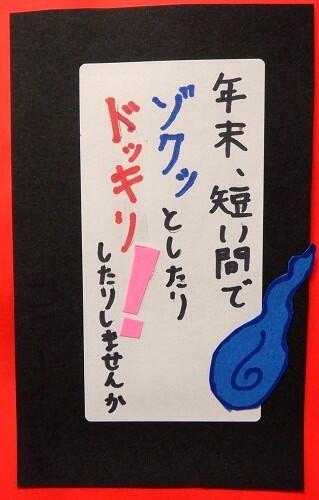 年末、短い間で
ゾクッとしたり
ドッキリ！
したりしませんか